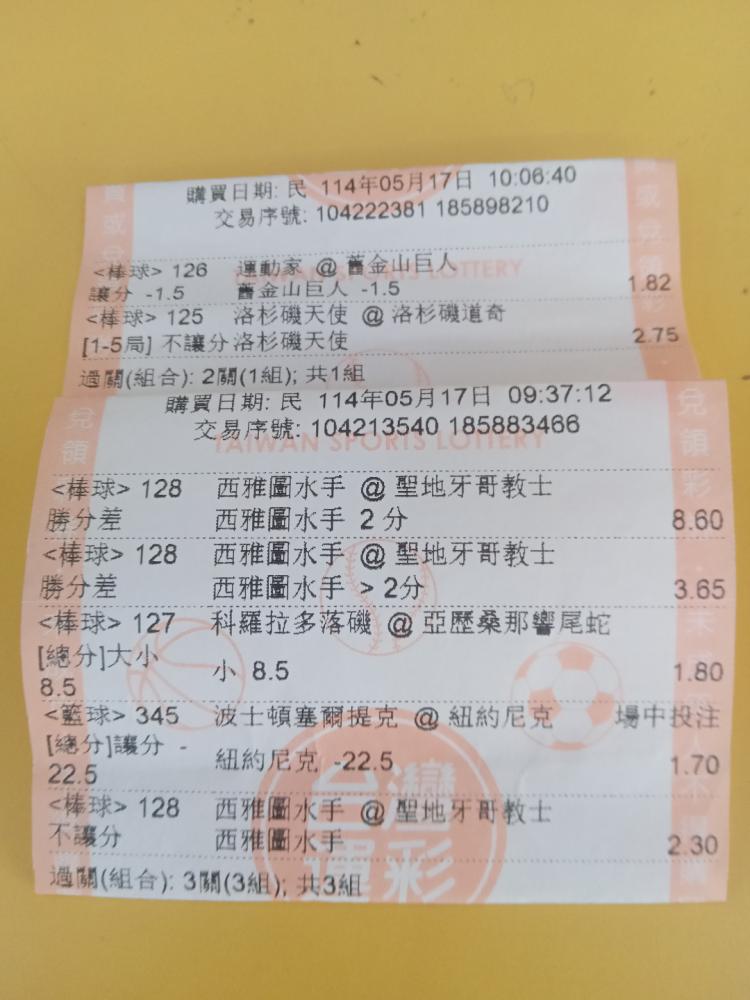 購買日期: 民 114年05月17日 10:06:40
交易序號: 104222381 185898210
TAIWAN SPORTS LOTTERY
<棒球> 126 運動家 @ 舊金山巨人
讓分 -1.5 舊金山巨人 -1.5 1.82
<棒球> 125 洛杉磯天使 @ 洛杉磯道奇
[1-5局] 不讓分 洛杉磯天使 2.75
過關(組合): 2關(1組); 共1組
購買日期: 民 114年05月17日 09:37:12
交易序號: 104213540 185883466
TAIWAN SPORTS LOTTERY
<棒球> 128 西雅圖水手 @ 聖地牙哥教士
勝分差 西雅圖水手 2 分 8.60
<棒球> 128 西雅圖水手 @ 聖地牙哥教士
勝分差 西雅圖水手 > 2分 3.65
<棒球> 127 科羅拉多落磯 @ 亞歷桑那響尾蛇
[總分]大小
8.5 小 8.5 1.80
<籃球> 345 波士頓塞爾提克 @ 紐約尼克 場中投注
[總分]讓分 -
22.5 紐約尼克 -22.5 1.70
<棒球> 128 西雅圖水手 @ 聖地牙哥教士
不讓分 西雅圖水手 2.30
過關(組合): 3關(3組); 共3組
兌領彩
台灣
運彩